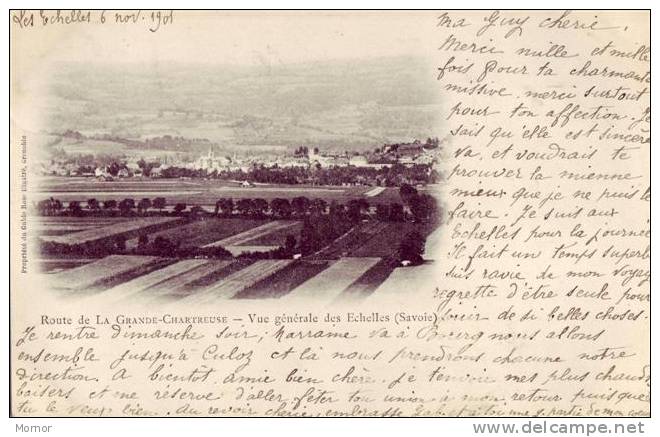 Les Echelles 6 nov. 1901
Ma Guy cherie,
Merci mille et mille
fois pour ta charmante
missive, merci surtout
pour ton affection. Je
sais qu'elle est sincère
va, et voudrais te
prouver la mienne
mieux que je ne puis le
faire. Je suis aux
Echelles pour la journée
Il fait un temps superbe
suis ravie de mon voyage
regrette d'être seule pour
jouir de si belles choses.
Propriété du Guide Bleu Illustré, Grenoble
Route de LA GRANDE-CHARTREUSE – Vue générale des Echelles (Savoie)
Je rentre dimanche soir; Marraine va à Bourg nous allons
ensemble jusqu'à Culoz et là nous prendrons chacune notre
direction. A bientôt, amie bien chère, je t'envoie mes plus chauds
baisers et me réserve d'aller fêter ton union à mon retour puisque
tu le veux bien. Au revoir chérie, embrasse et à toi une s. partie de mon coeur
Mornor
www.delcampe.net